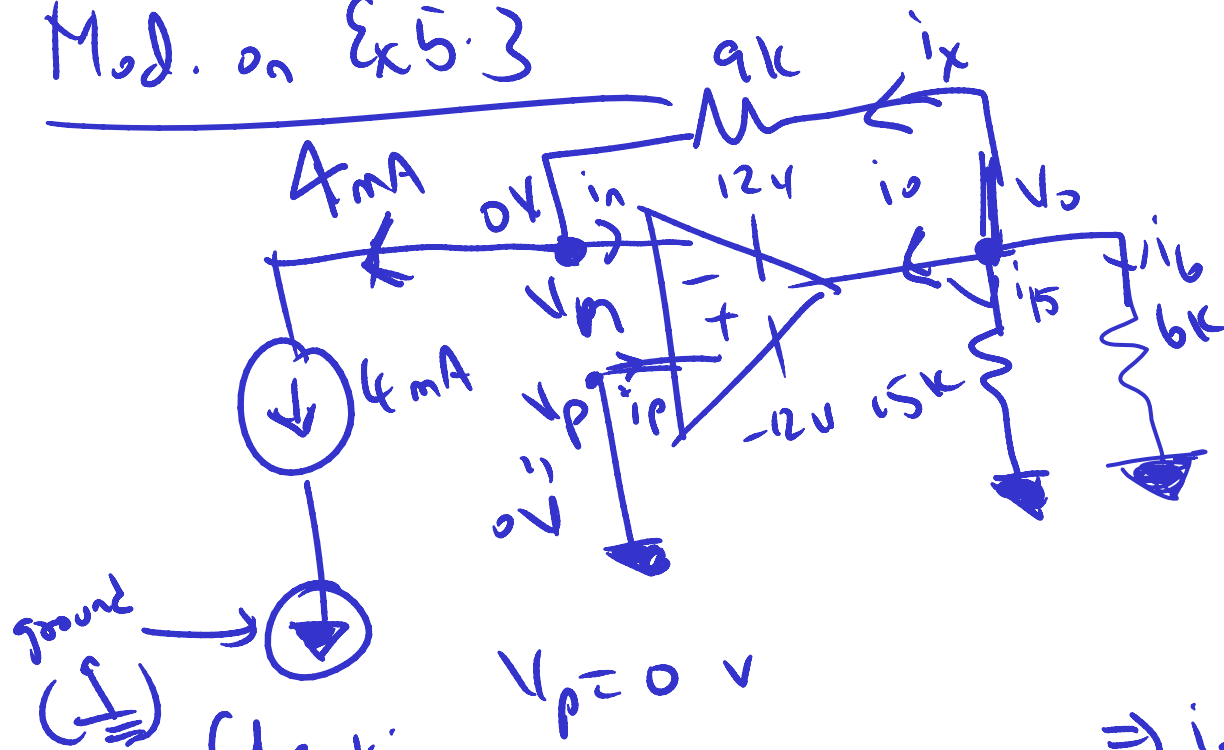 Mod. on Ex 5.3
9k
ix
4mA
0V
in
12V
io
Vo
Vn
-
+
i15
i6
6k
4mA
Vp
ip
-12V
15k
0V
ground
Vp = 0 V